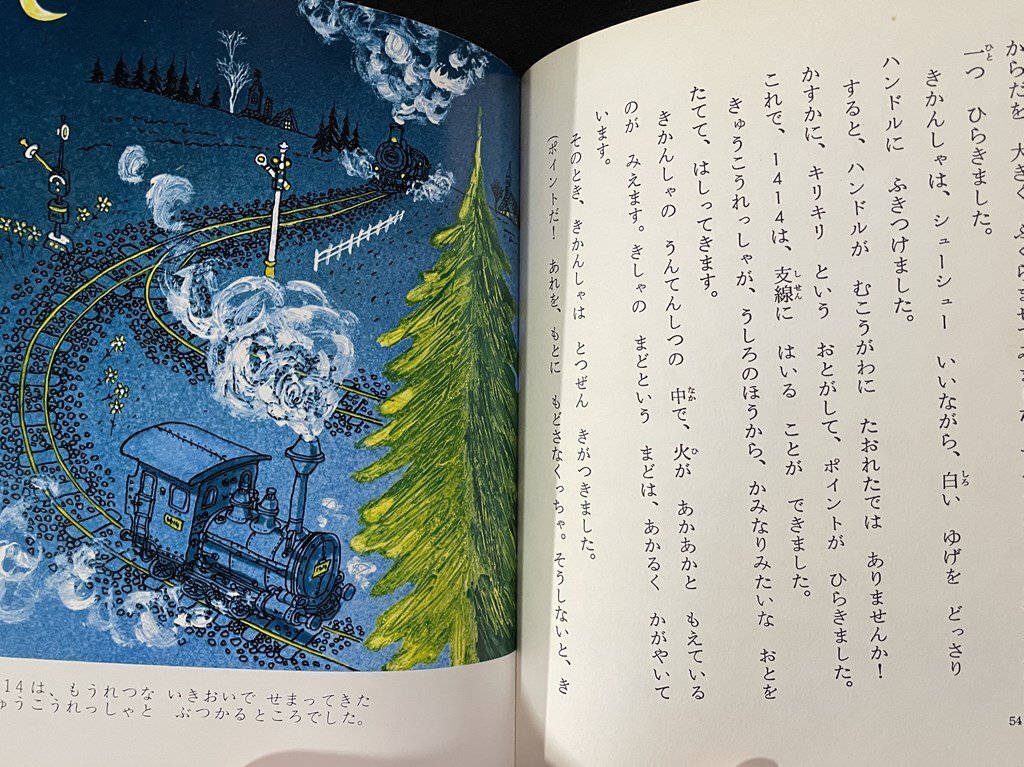 からだを 大きく
一つ ひらきました。
きかんしゃは、シューシュー いいながら、白い ゆげを どっさり
ハンドルに ふきつけました。
すると、ハンドルが むこうがわに たおれたでは ありませんか！
かすかに、キリキリ という おとがして、ポイントが ひらきました。
これで、1414は、支線に はいる ことが できました。
きゅうこうれっしゃが、うしろのほうから、かみなりみたいな おとを
たてて、はしってきます。
きかんしゃの うんてんしつの 中で、火が あかあかと もえている
のが みえます。きしゃの まどという まどは、あかるく かがやいて
います。
そのとき、きかんしゃは とつぜん きがつきました。
（ポイントだ！ あれを、もとに もどさなくっちゃ。そうしないと、き
54
14は、もうれつな いきおいで せまってきた
ゅうこうれっしゃと ぶつかるところでした。